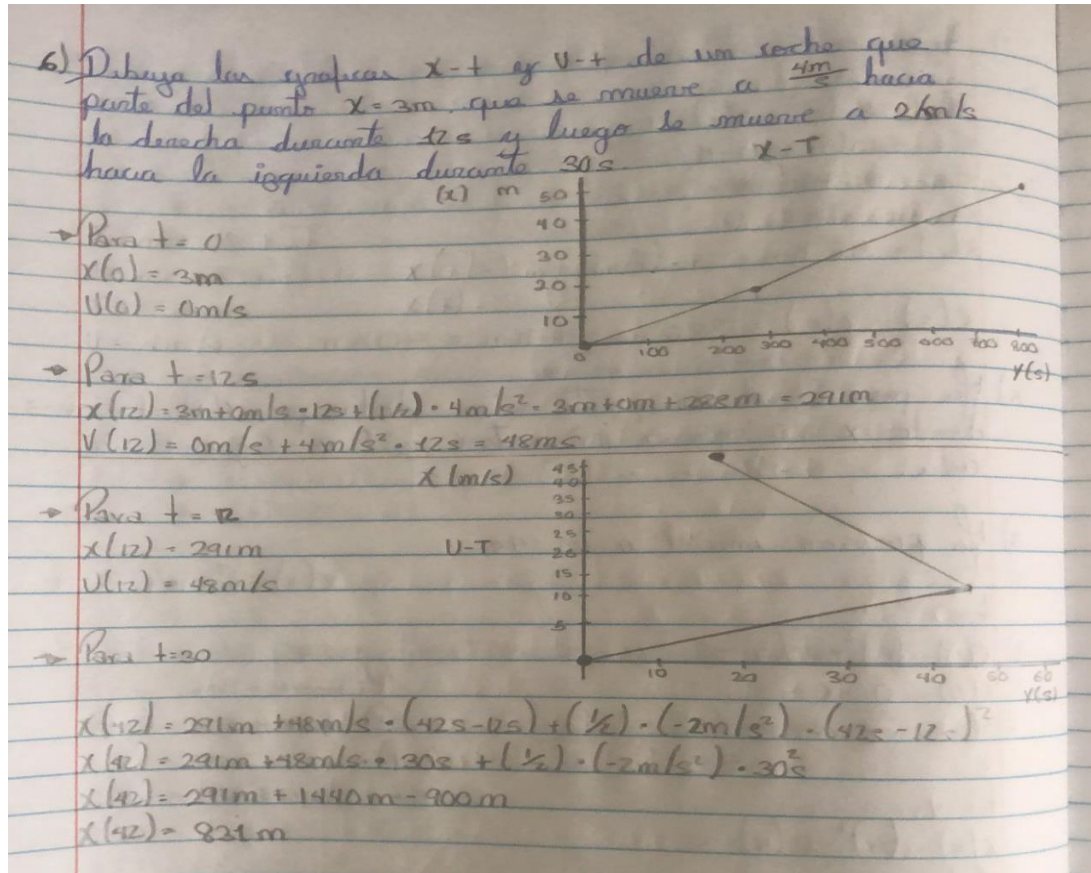 6) Dibuja las graficas x-t y v-t de un coche que
parte del punto x = 3m que se mueve a 4m/s hacia
la derecha durante 12s y luego se mueve a 2km/s
hacia la izquierda durante 30s
x-T
(x) m
50
40
30
20
10
0 100 200 300 400 500 600 700 800
Y(s)
→ Para t = 0
x(0) = 3m
V(0) = 0m/s
→ Para t = 12s
x(12) = 3m + 0m/s • 12s + (1/2) • 4m/s² = 3m + 0m + 288m = 291m
V(12) = 0m/s + 4m/s² • 12s = 48ms
X (m/s)
V-T
45
40
35
30
25
20
15
10
5
10 20 30 40 50 60
Y(s)
→ Para t = 12
x(12) = 291m
V(12) = 48m/s
→ Para t=20
x(42) = 291m + 48m/s • (42s-12s) + (1/2) • (-2m/s²) • (42s-12s)²
x(42) = 291m + 48m/s • 30s + (1/2) • (-2m/s²) • 30²s
x(42) = 291m + 1440m - 900m
x(42) = 831m